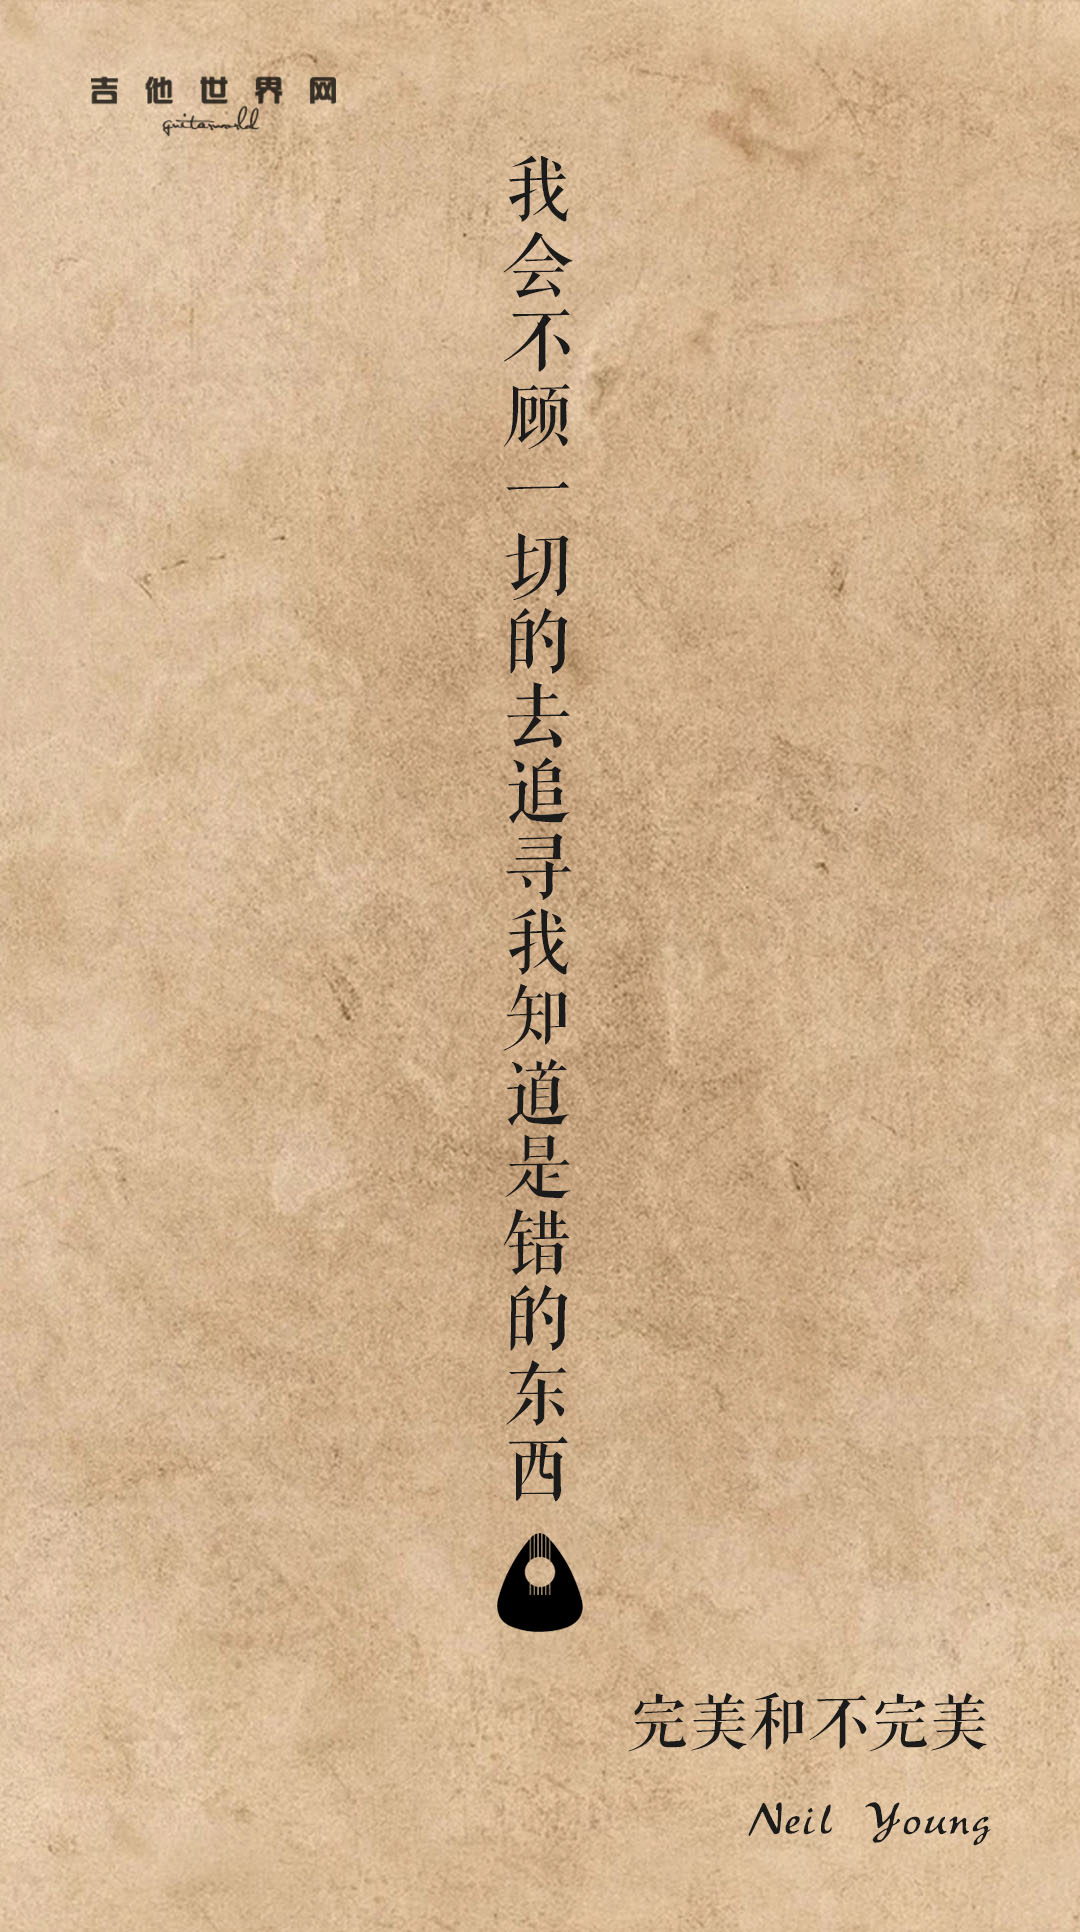 吉他世界网
guitarworld
我会不顾一切的去追寻我知道是错的东西
完美和不完美
Neil Young